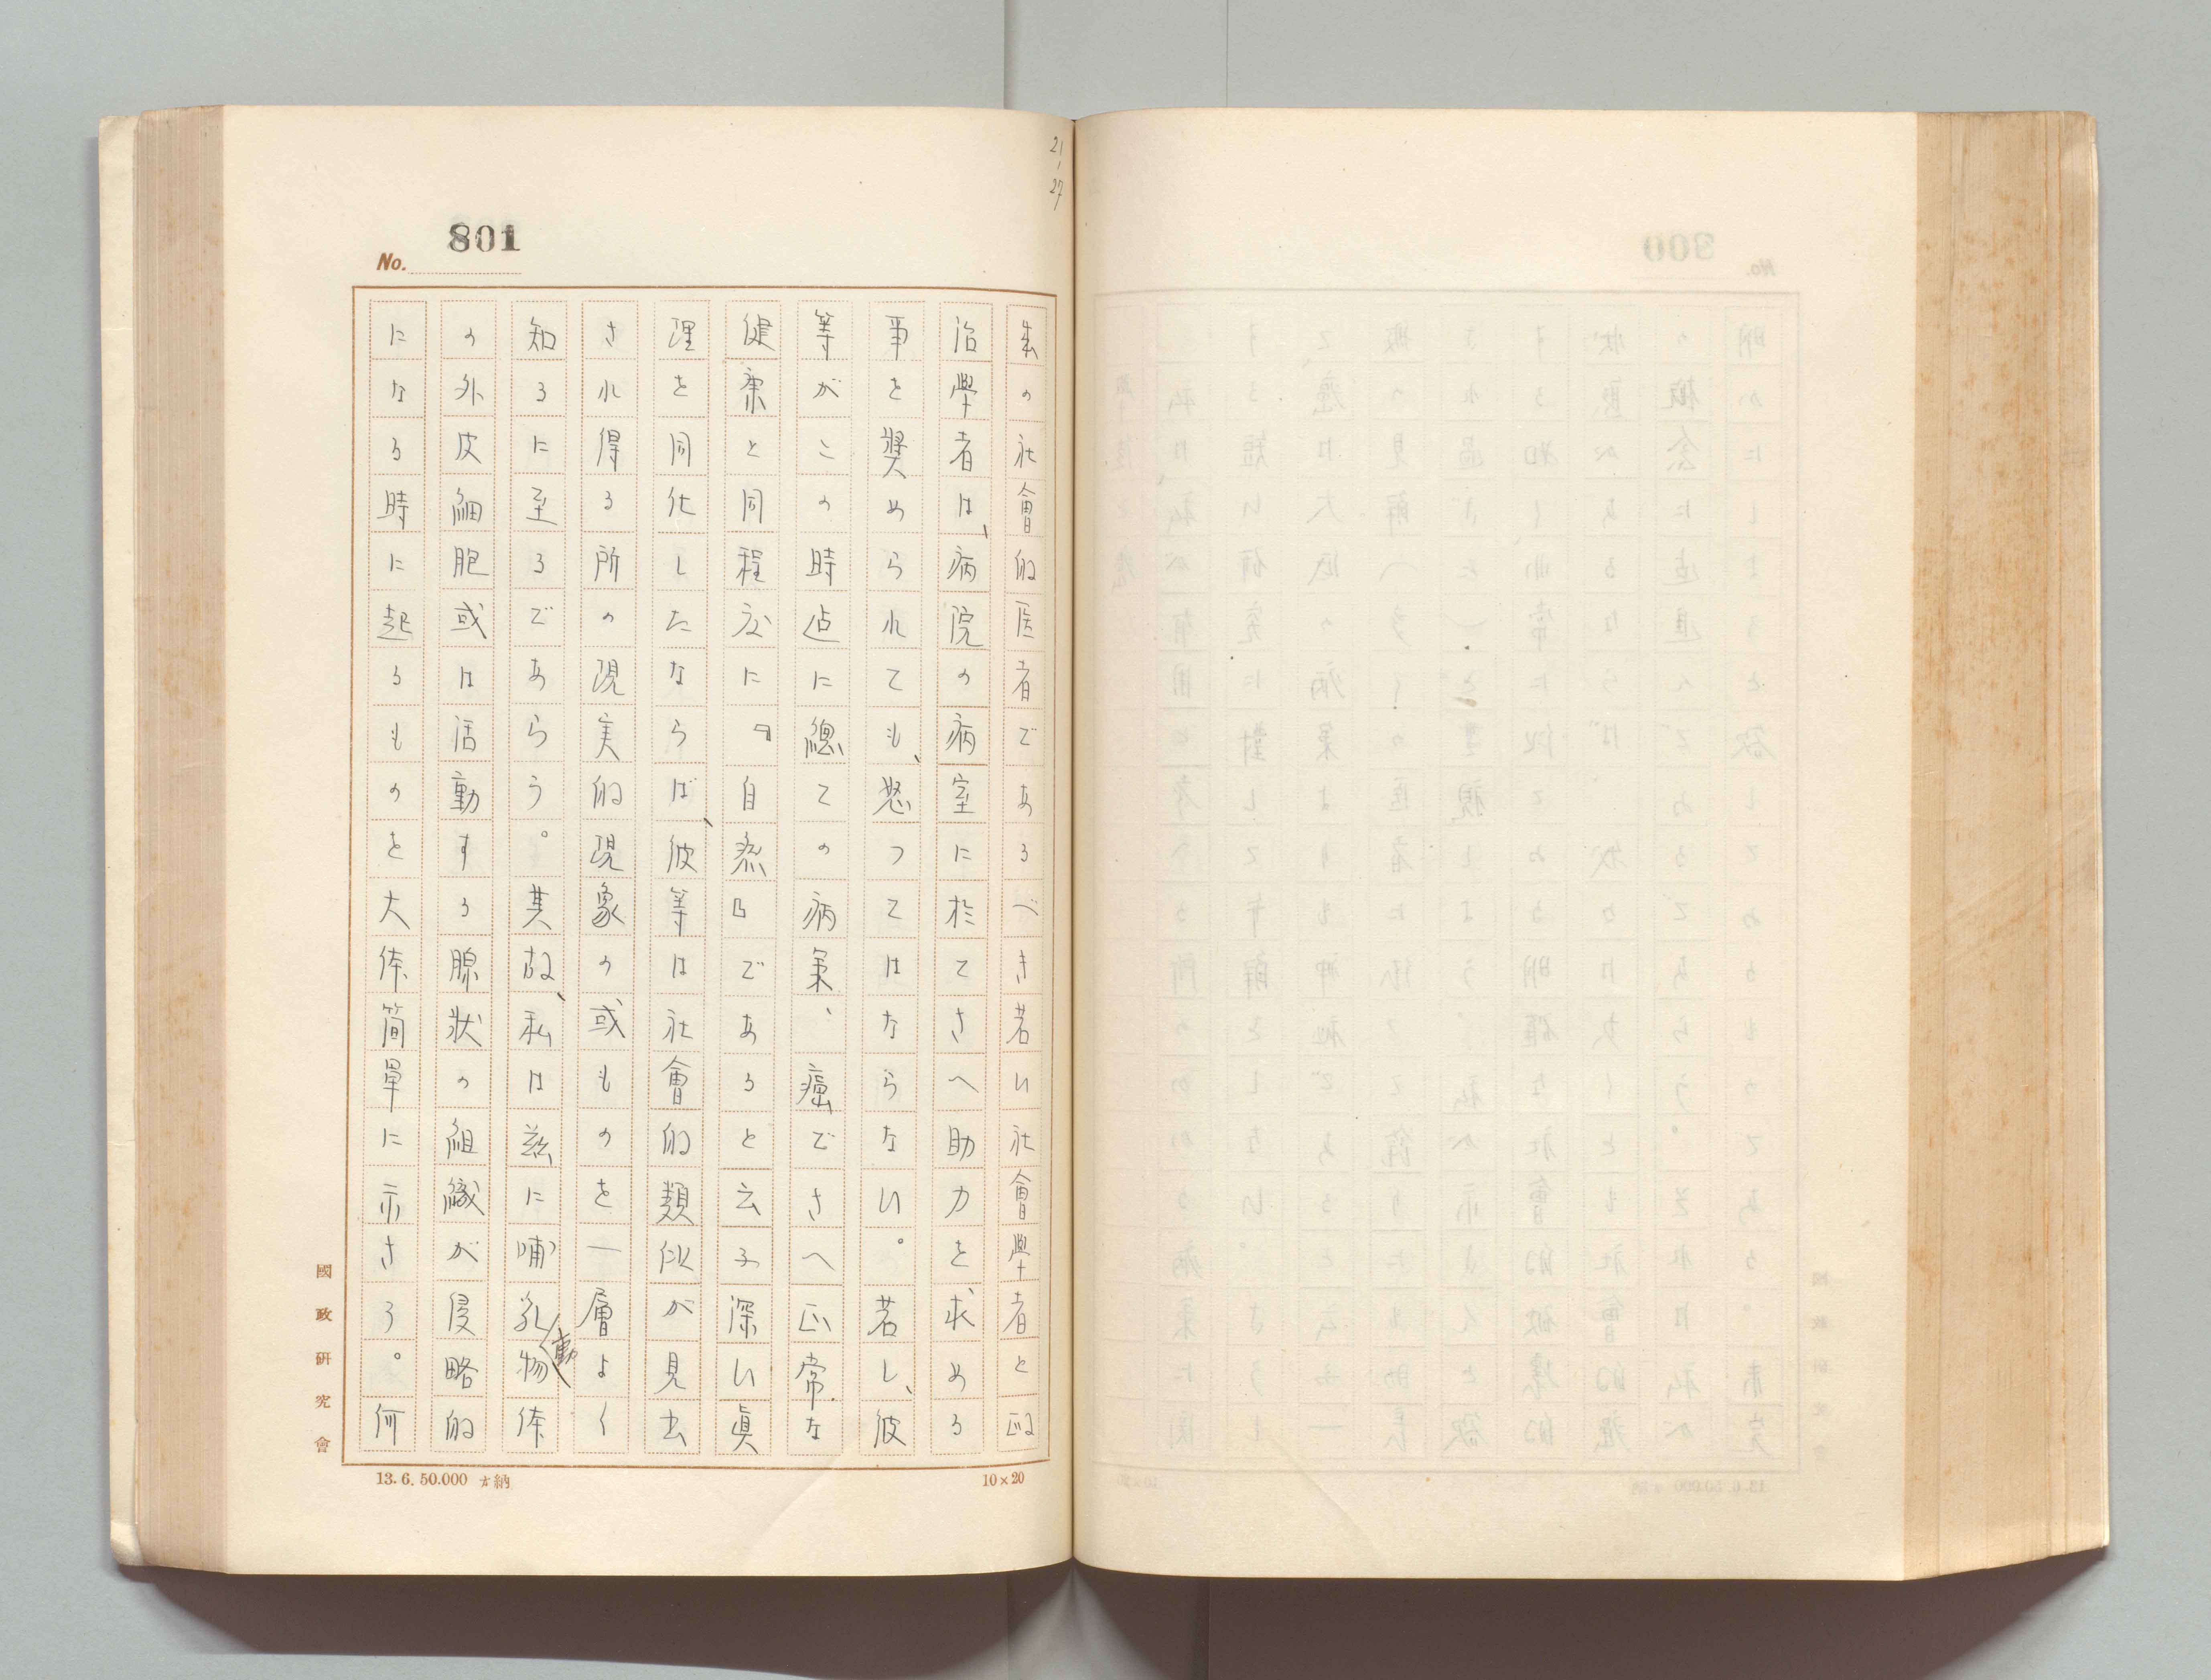 21
27
801
No.
来の社會的医者であるべき若い社會學者と政
治學者は、病院の病室に於てさへ助力を求める
事を奨められても、怒つてはならない。若し、彼
等がこの時点に總ての病氣、癌でさへ正常な
健康と同程度に『自然』であると云ふ深い眞
理を同化したならば、彼等は社會的類似が見出
され得る所の現実的現象の或ものを一層よく
知るに至るであらう。其故、私は茲に哺乳動物体
の外皮細胞或は活動する腺状の組織が侵略的
になる時に起るものを大体简單に示さう。何
國政研究會
13. 6. 50.000 納
10×20